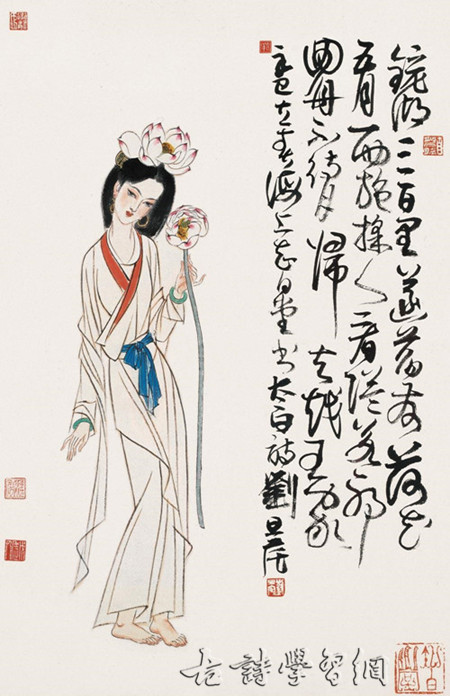 鏡湖三百里菡萏發荷花
五月西施採人看隘若耶
回舟不待月歸去越王家
海上書太白詩劉旦宅
古詩學習網